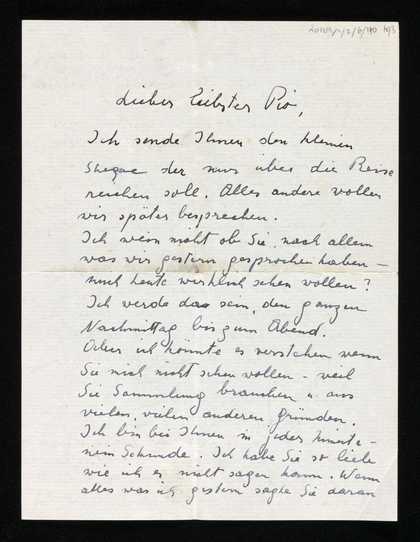 dieber liebster Pio,
Ich sende Ihnen den kleinen
der nur über die Reise
reichen soll. Alles andere wollen
wir später besprechen.
Ich weiss nicht ob Sie, nach allem
was wir gestern gesprochen haben –
mich heute wirklich sehen wollen?
Ich werde da sein, den ganzen
Nachmittag bis zum Abend.
Aber ich könnte es verstehen wenn
Sie mich nicht sehen wollen – weil
Sie Sammlung brauchen u. aus
vielen, vielen anderen Gründen.
Ich bin bei Ihnen in jeder
Ich habe Sie so lieb
wie ich es nicht sagen kann. Wenn
alles was ich gestern sagte Sie daran